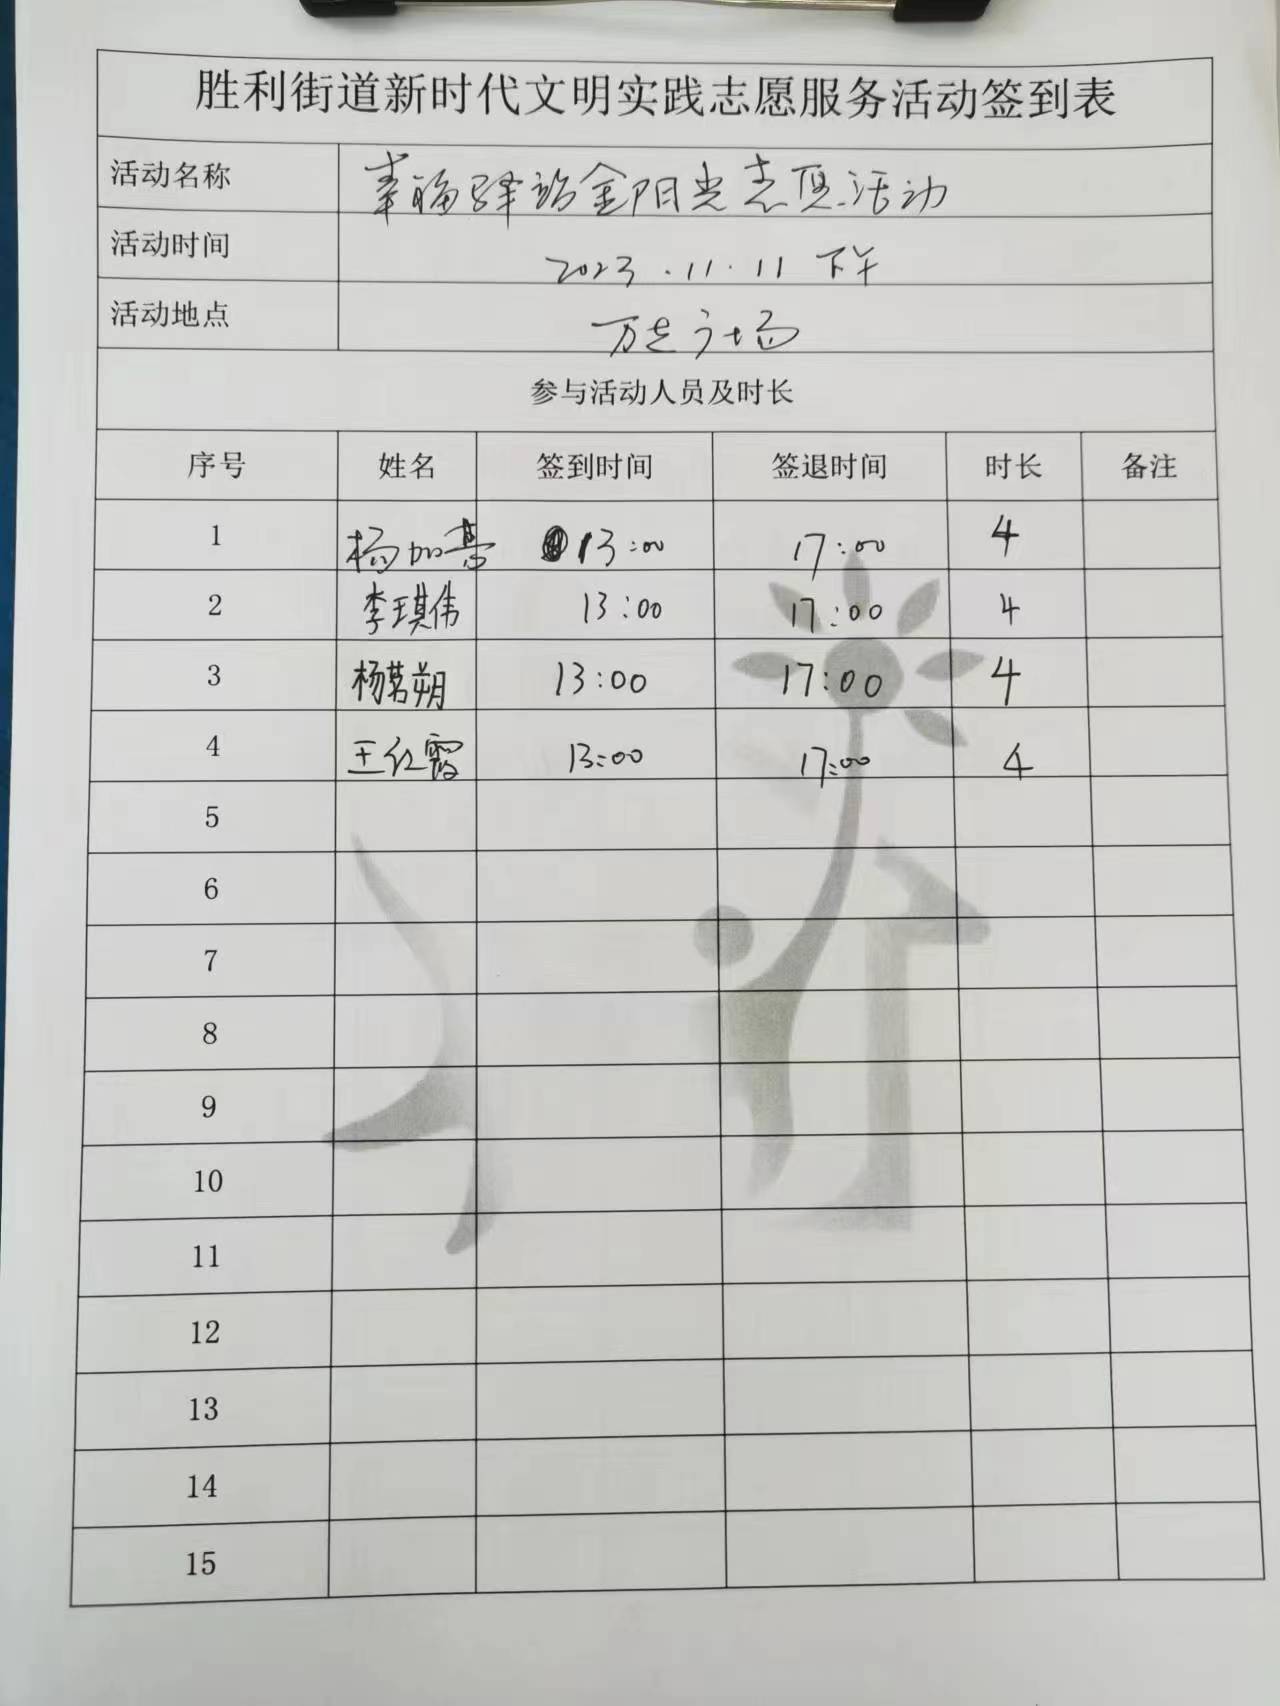 胜利街道新时代文明实践志愿服务活动签到表
活动名称 幸福驿站金阳光志愿活动
活动时间 2023.11.11 下午
活动地点 万达广场
参与活动人员及时长
序号 姓名 签到时间 签退时间 时长 备注
1 杨加 13:00 17:00 4
2 李琪伟 13:00 17:00 4
3 杨茗朔 13:00 17:00 4
4 王红霞 13:00 17:00 4
5
6
7
8
9
10
11
12
13
14
15